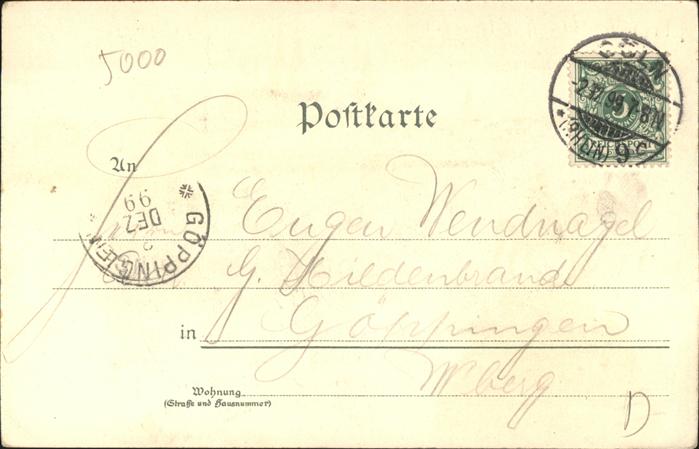 5000
CÖLN
99. 7-8 N
(RHEIN) 9
5
Postkarte
An
GÖPPINGEN
DEZ
99
Eugen Wendnagel
G. Hildenbrand
in Göppingen
Wberg
Wohnung
(Straße und Hausnummer)
D